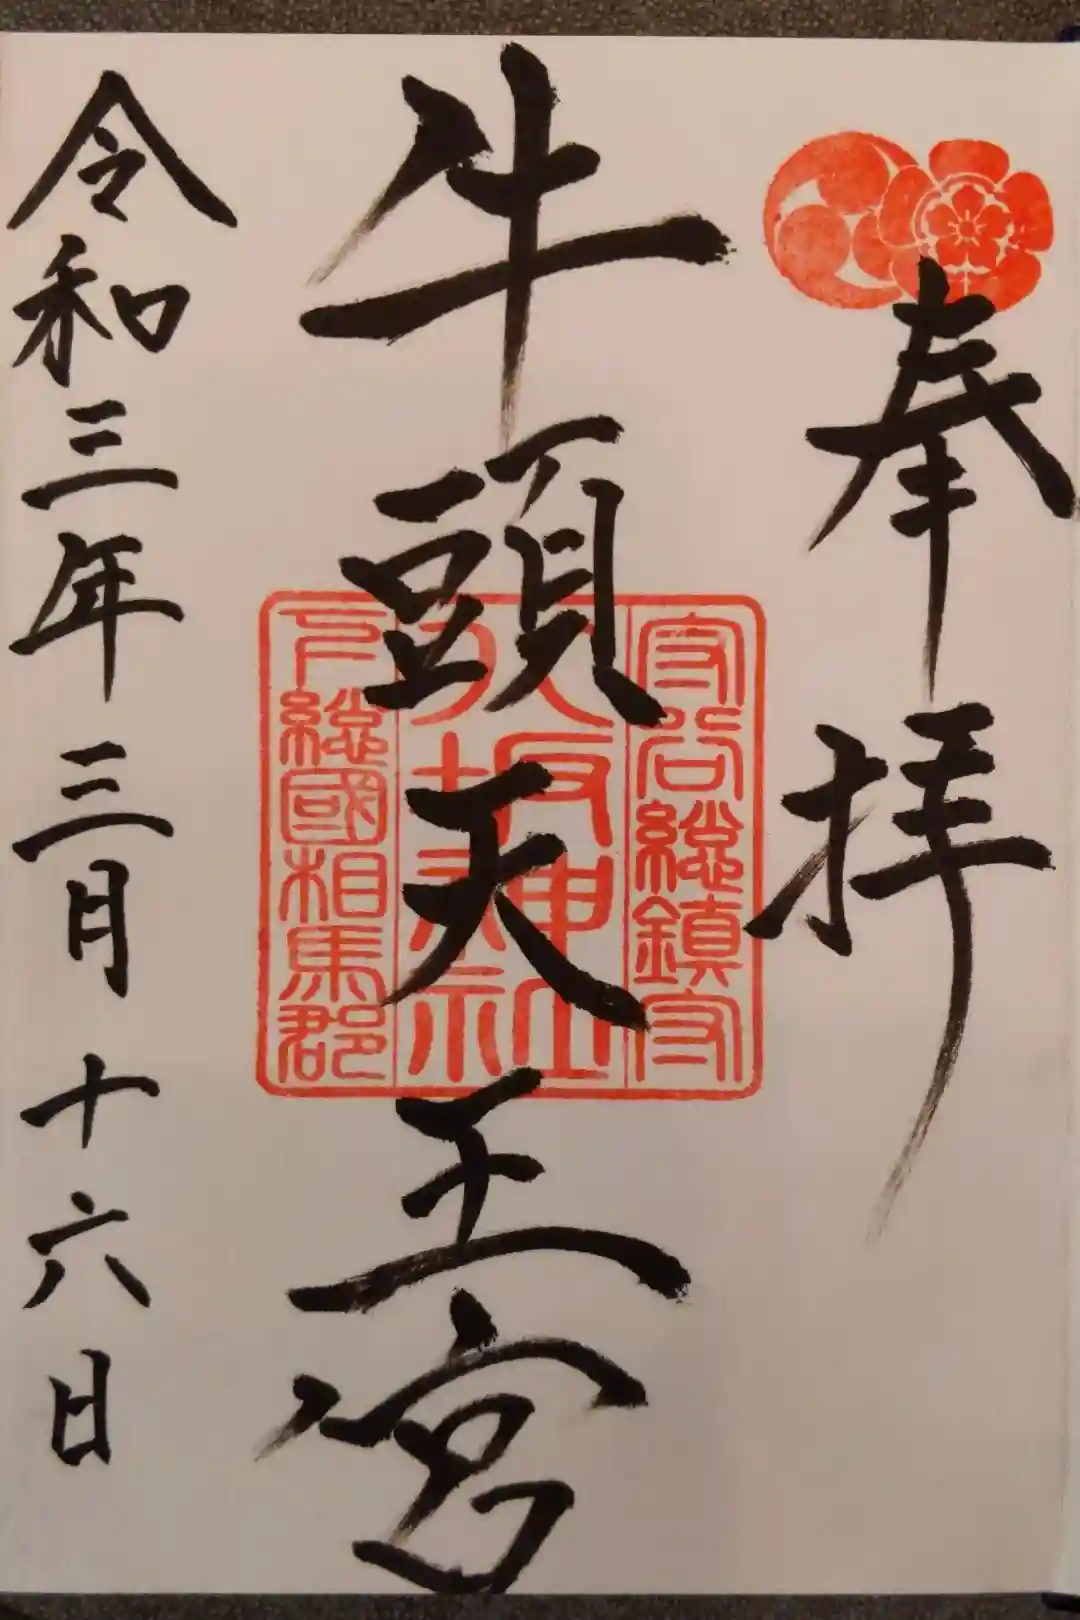 奉拝
牛頭天王宮
守谷総鎮守
八坂神社
下総國相馬郡
令和三年三月十六日